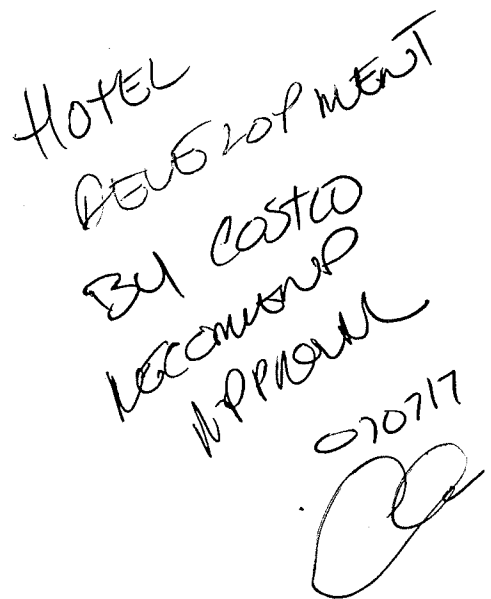 HOTEL
DEVELOPMENT
BY COSTCO
RECOMMEND
APPROVAL
070717